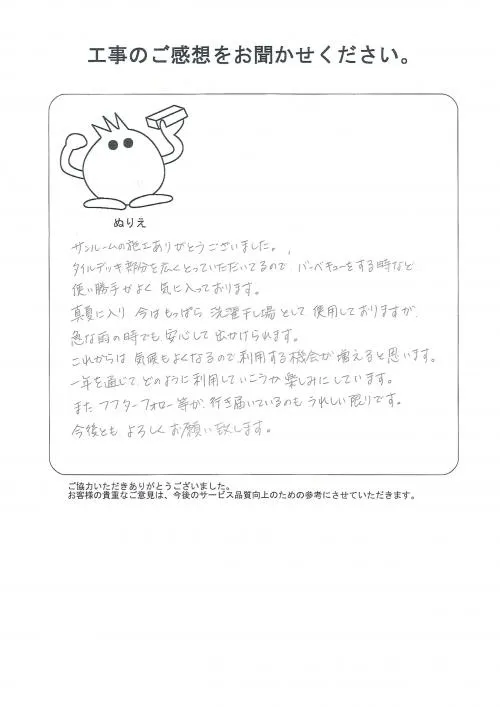 工事のご感想をお聞かせください。
ぬりえ
サンルームの施工ありがとうございました。
タイルデッキ部分を広くとっていただいてるので バーベキューをする時など
使い勝手がよく 気に入っております。
真夏に入り 今はもっぱら 洗濯干し場として 使用しておりますが、
急な雨の時でも 安心して 出かけられます。
これからは 気候もよくなるので 利用する機会が 増えると思います。
一年を通じて、どのように利用していこうか 楽しみにしています。
また アフターフォロー等が、行き届いているのも うれしい限りです。
今後とも よろしく お願い致します。
ご協力いただきありがとうございました。
お客様の貴重なご意見は、今後のサービス品質向上のための参考にさせていただきます。